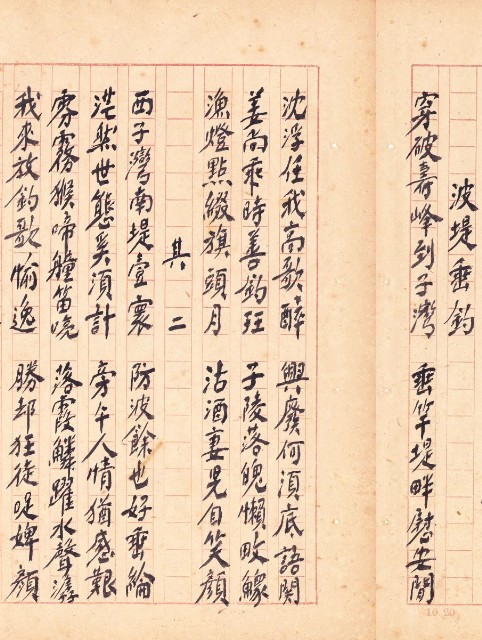 波堤垂釣
穿破壽峰到子灣 垂竿堤畔慰安閒
沈浮任我高歌醉 興廢何須底語関
姜尚乘時善釣 子陵落魄懶畋鰥
漁燈點綴旗頭月 沽酒妻児自笑顏
其二
西子灣南堤壹寰 防波餘也好垂綸
茫然世態奚須計 旁午人情猶感艱
雰霧猴啼艟笛 落霞鱗躍水聲潺
我來放釣歌愉逸 勝却狂徒叱婢顏
10.20